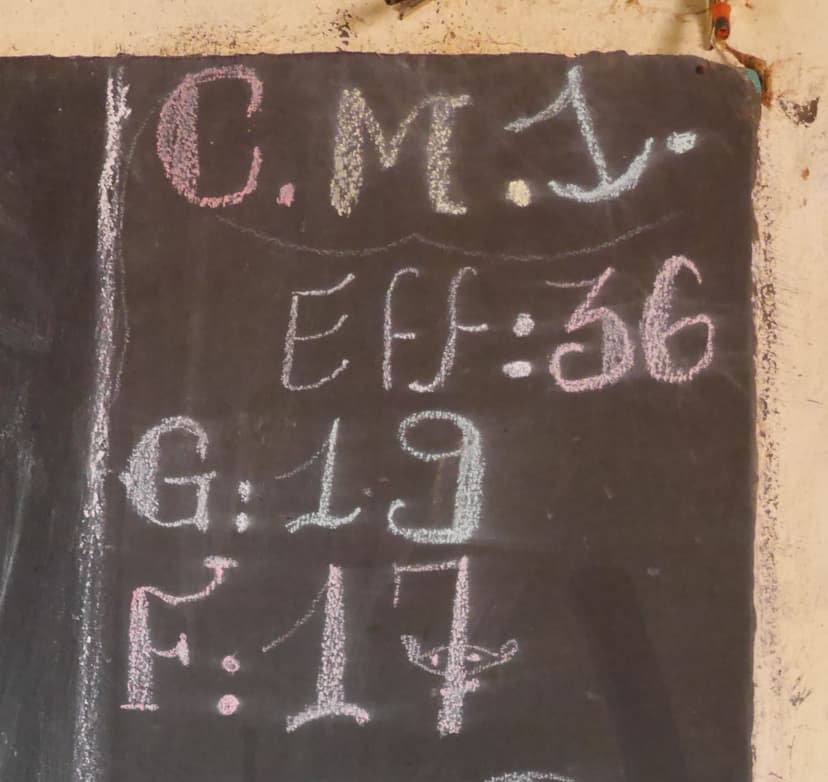 C.M.1.
Eff:36
G:19
F:17